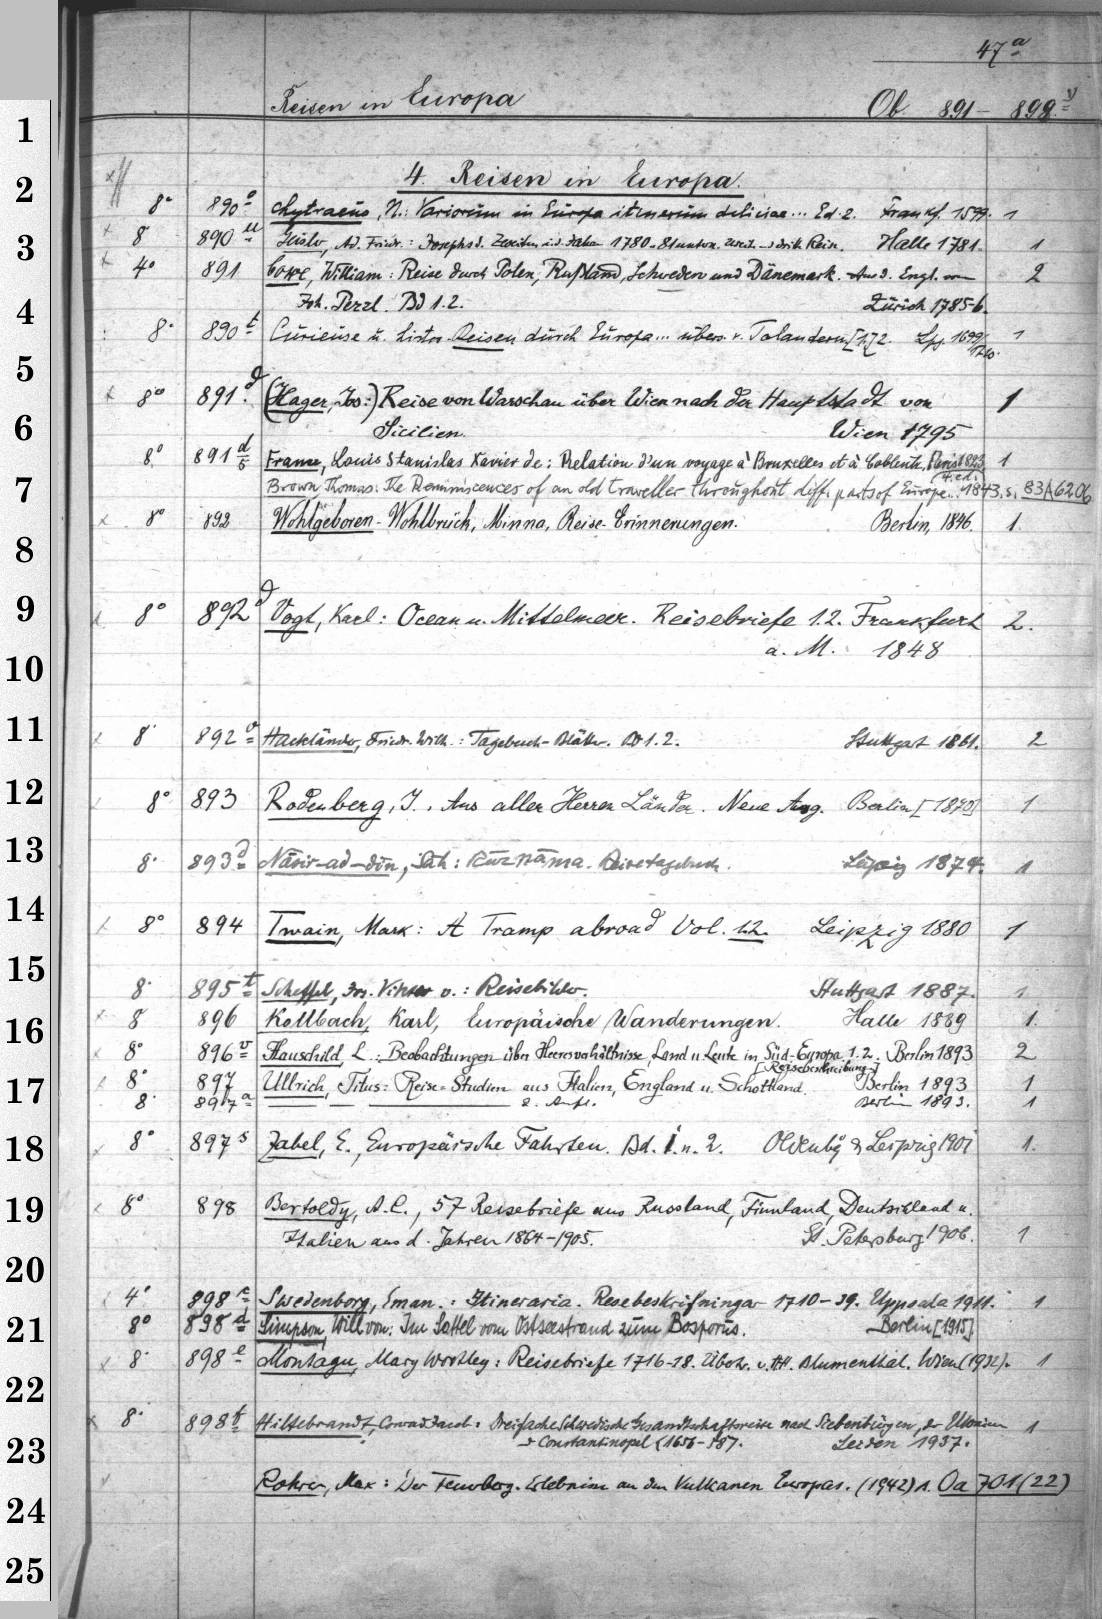 47a
Reisen in Europa Ob 891– 898v
4. Reisen in Europa.
8° 890o Chytraeus, N.: Variorum in Europa itinerum deliciae... Ed. 2. Frankf. 1599. 1
8° 890u Ad. Friedr.: Josephs d. Zweiten 1780 – 81 Reis. Halle 1781. 1
4° 891 Coxe, William: Reise durch Polen, Rußland, Schweden und Dänemark. Aus d. Engl. von 2
Joh. Pezzl. Bd 1.2. Zürich 1785-6.
8° 890t Curieuse u. histor. Reisen durch Europa... übers. v. Talandern [1.] 2. Lpz. 1699/ 1
8° 891d (Hager, Jos:) Reise von Warschau über Wien nach der Hauptstadt von 1
Sicilien. Wien 1795
8° 891d/5 France, Louis Stanislas Xavier de: Relation d'un voyage à Bruxelles et à Coblentz, Paris 1823 1
(4. ed.)
Brown Thomas: The Reminiscences of an old traveller throughout diff. parts of Europe... 1843. s. 83A6206
8° 892 Wohlgeboren - Wohlbrück, Minna, Reise-Erinnerungen. Berlin, 1846. 1.
8° 892d Vogt, Karl: Ocean u. Mittelmeer. Reisebriefe 1.2. Frankfurt 2.
a. M. 1848
8° 892v Hackländer, Friedr. Wilh.: Tagebuch-Blätter. Bd 1.2. Stuttgart 1861. 2
8° 893 Rodenberg, J., Aus aller Herren Länder. Neue Ausg. Berlin [1870] 1
8° 893d Nāsir-ad-dīn, Šāh: Rūznāma. Reisetagebuch. Leipzig 1874. 1
8° 894 Twain, Mark: A Tramp abroad Vol. 1.2. Leipzig 1880 1
8° 895t Scheffel, Jos. Viktor v.: Reisebilder. Stuttgart 1887. 1
8° 896 Kollbach, Karl, Europäische Wanderungen. Halle 1889 1.
8° 896v Hauschild, L.: Beobachtungen über Heeresverhältnisse, Land u. Leute in Süd-Europa. 1.2. Berlin 1893 2
[Reisebeschreibung]
8° 897 Ullrich, Titus: Reise-Studien aus Italien, England u. Schottland. Berlin 1893 1
8° 897a — — — 2. Aufl. Berlin 1893. 1
8° 897s Zabel, E., Europäische Fahrten. Bd. 1. u. 2. Oldenbg & Leipzig 1901 1.
8° 898 Bertoldy, A.C., 57 Reisebriefe aus Russland, Finnland, Deutschland u.
Italien aus d. Jahren 1864–1905. St. Petersburg 1906. 1
4° 898c Swedenborg, Eman.: Itineraria. Resebeskrifningar 1710–39. Uppsala 1911. 1
8° 898d Simpson, Will von: Im Sattel vom Ostseestrand zum Bosporus. Berlin [1915]
8° 898e Montagu, Mary Wortley: Reisebriefe 1716-18. Übers. v. HH. Blumenthal. Wien (1932). 1
8° 898t Hiltebrandt, Conrad Jacob: Dreifache Schwedische Gesandtschaftsreise nach Siebenbürgen, der Ukraine 1
u. Constantinopel (1656–58). Leiden 1937.
Rohrer, Max: Der Feuerberg. Erlebnisse an den Vulkanen Europas. (1942) s. Oa 701 (22)
1
2
3
4
5
6
7
8
9
10
11
12
13
14
15
16
17
18
19
20
21
22
23
24
25